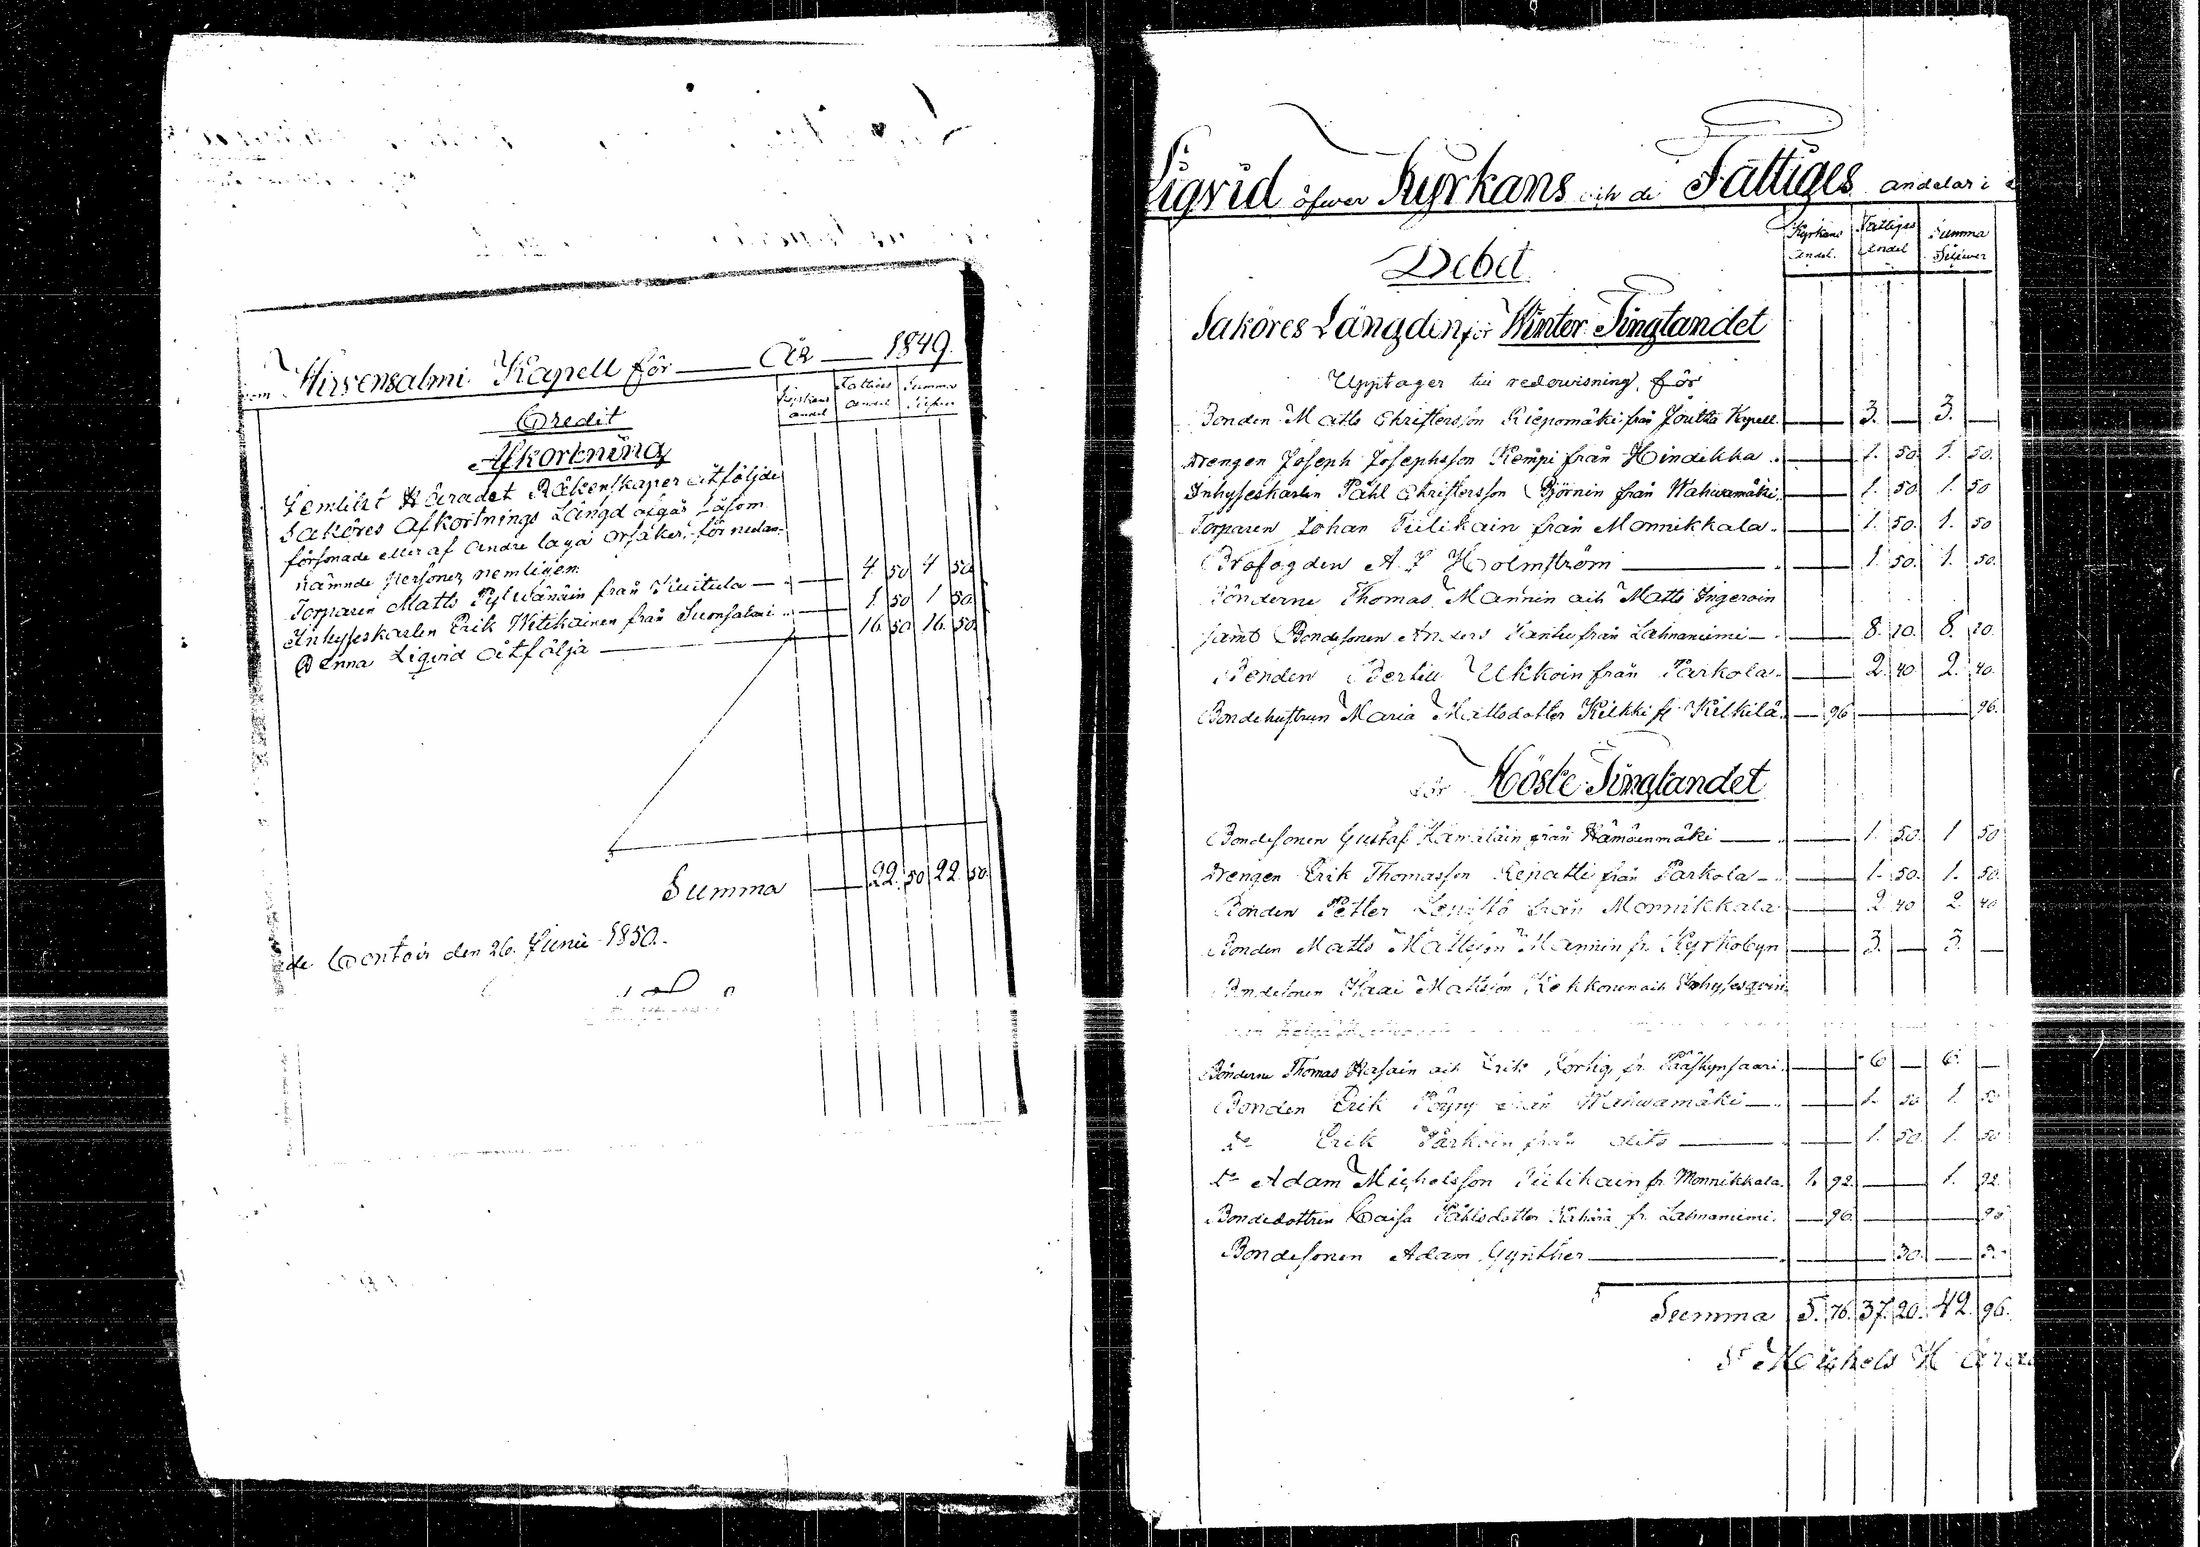 Hirvensalmi Kapell för — År — 1849.
Kyrkans andel Fattiges andel Summa Silfver
Credit
Afkortning
Jemlikt Häradet Räkenskaper åtföljde
Saköres Afkortnings Längd afgår såsom
försonade eller af andre laga orsaker, för nedan-
nämnde personer nemligen:
Torparen Matts Pylwänäin från Kuitula — 4 50 4 50
Inhyseskarlen Erik Witikainen från Suonsalmi — 1 50 1 50
Denna Liqvid åtfölja — 16 50 16 50
Summa — 22. 50 22 50
Contoir den 26. Junii 1850.
Liqvid öfwer Kyrkans och de Fattiges andelar i
Kyrkans andel. Fattiges andel Summa Silfwer
Debet
Saköres Längden för Winter Tingtandet
Upptager till redowisning, för
Bonden Matts Christersson Riepomäki från Joutsa Kapell. — 3. — 3. —
Drengen Joseph Josephsson Kempi från Hindikka — 1. 50. 1. 50.
Inhyseskarlen Påhl Christersson Björnin från Wahwamäki. — 1. 50 1. 50
Torparen Johan Tiilikain från Monnikkala. — 1. 50. 1. 50
Profogden A. F Holmström — 1. 50. 1. 50.
Bönderne Thomas Mannin och Matts Ingeroin
samt Bondesonen Anders Pantu från Lahnaniemi — 8. 10. 8. 10.
Bonden Bertill Ukkoin från Parkola. — 2. 40. 2. 40.
Bondehustrun Maria Mattsdotter Kilkki fr Kilkilä. — 96 — 96.
för Höste Tingtandet
Bondesonen Gustaf Hämäläin från Hämäenmäki — 1. 50. 1 50
Drengen Erik Thomasson Repatti från Parkola — 1. 50. 1. 50.
Bonden Petter Monnikkala — 2 40 2 40
Bonden Matts Mattsson Mannin fr. Kyrkobyn — 3. — 3. —
Bondesonen Mattsson Kokkonen och Inhysesqvin
Bönderne Thomas Hasain och Erik fr. Pääskynsaari. — 6 — 6. —
Bonden Erik Pöyry från Wahwamäki — 1. 50 1. 50
Do Erik Parkoin från — 1. 50. 1. 50
Do Adam Michelsson Tiilikain fr. Monnikkala. 1. 92. — 1. 92.
Bondedottren Caisa Påhlsdotter fr. Lahnaniemi. — 96 — 96
Bondesonen Adam Gynther — 30. —
Summa 5. 76. 37. 20. 42. 96.
St Michels